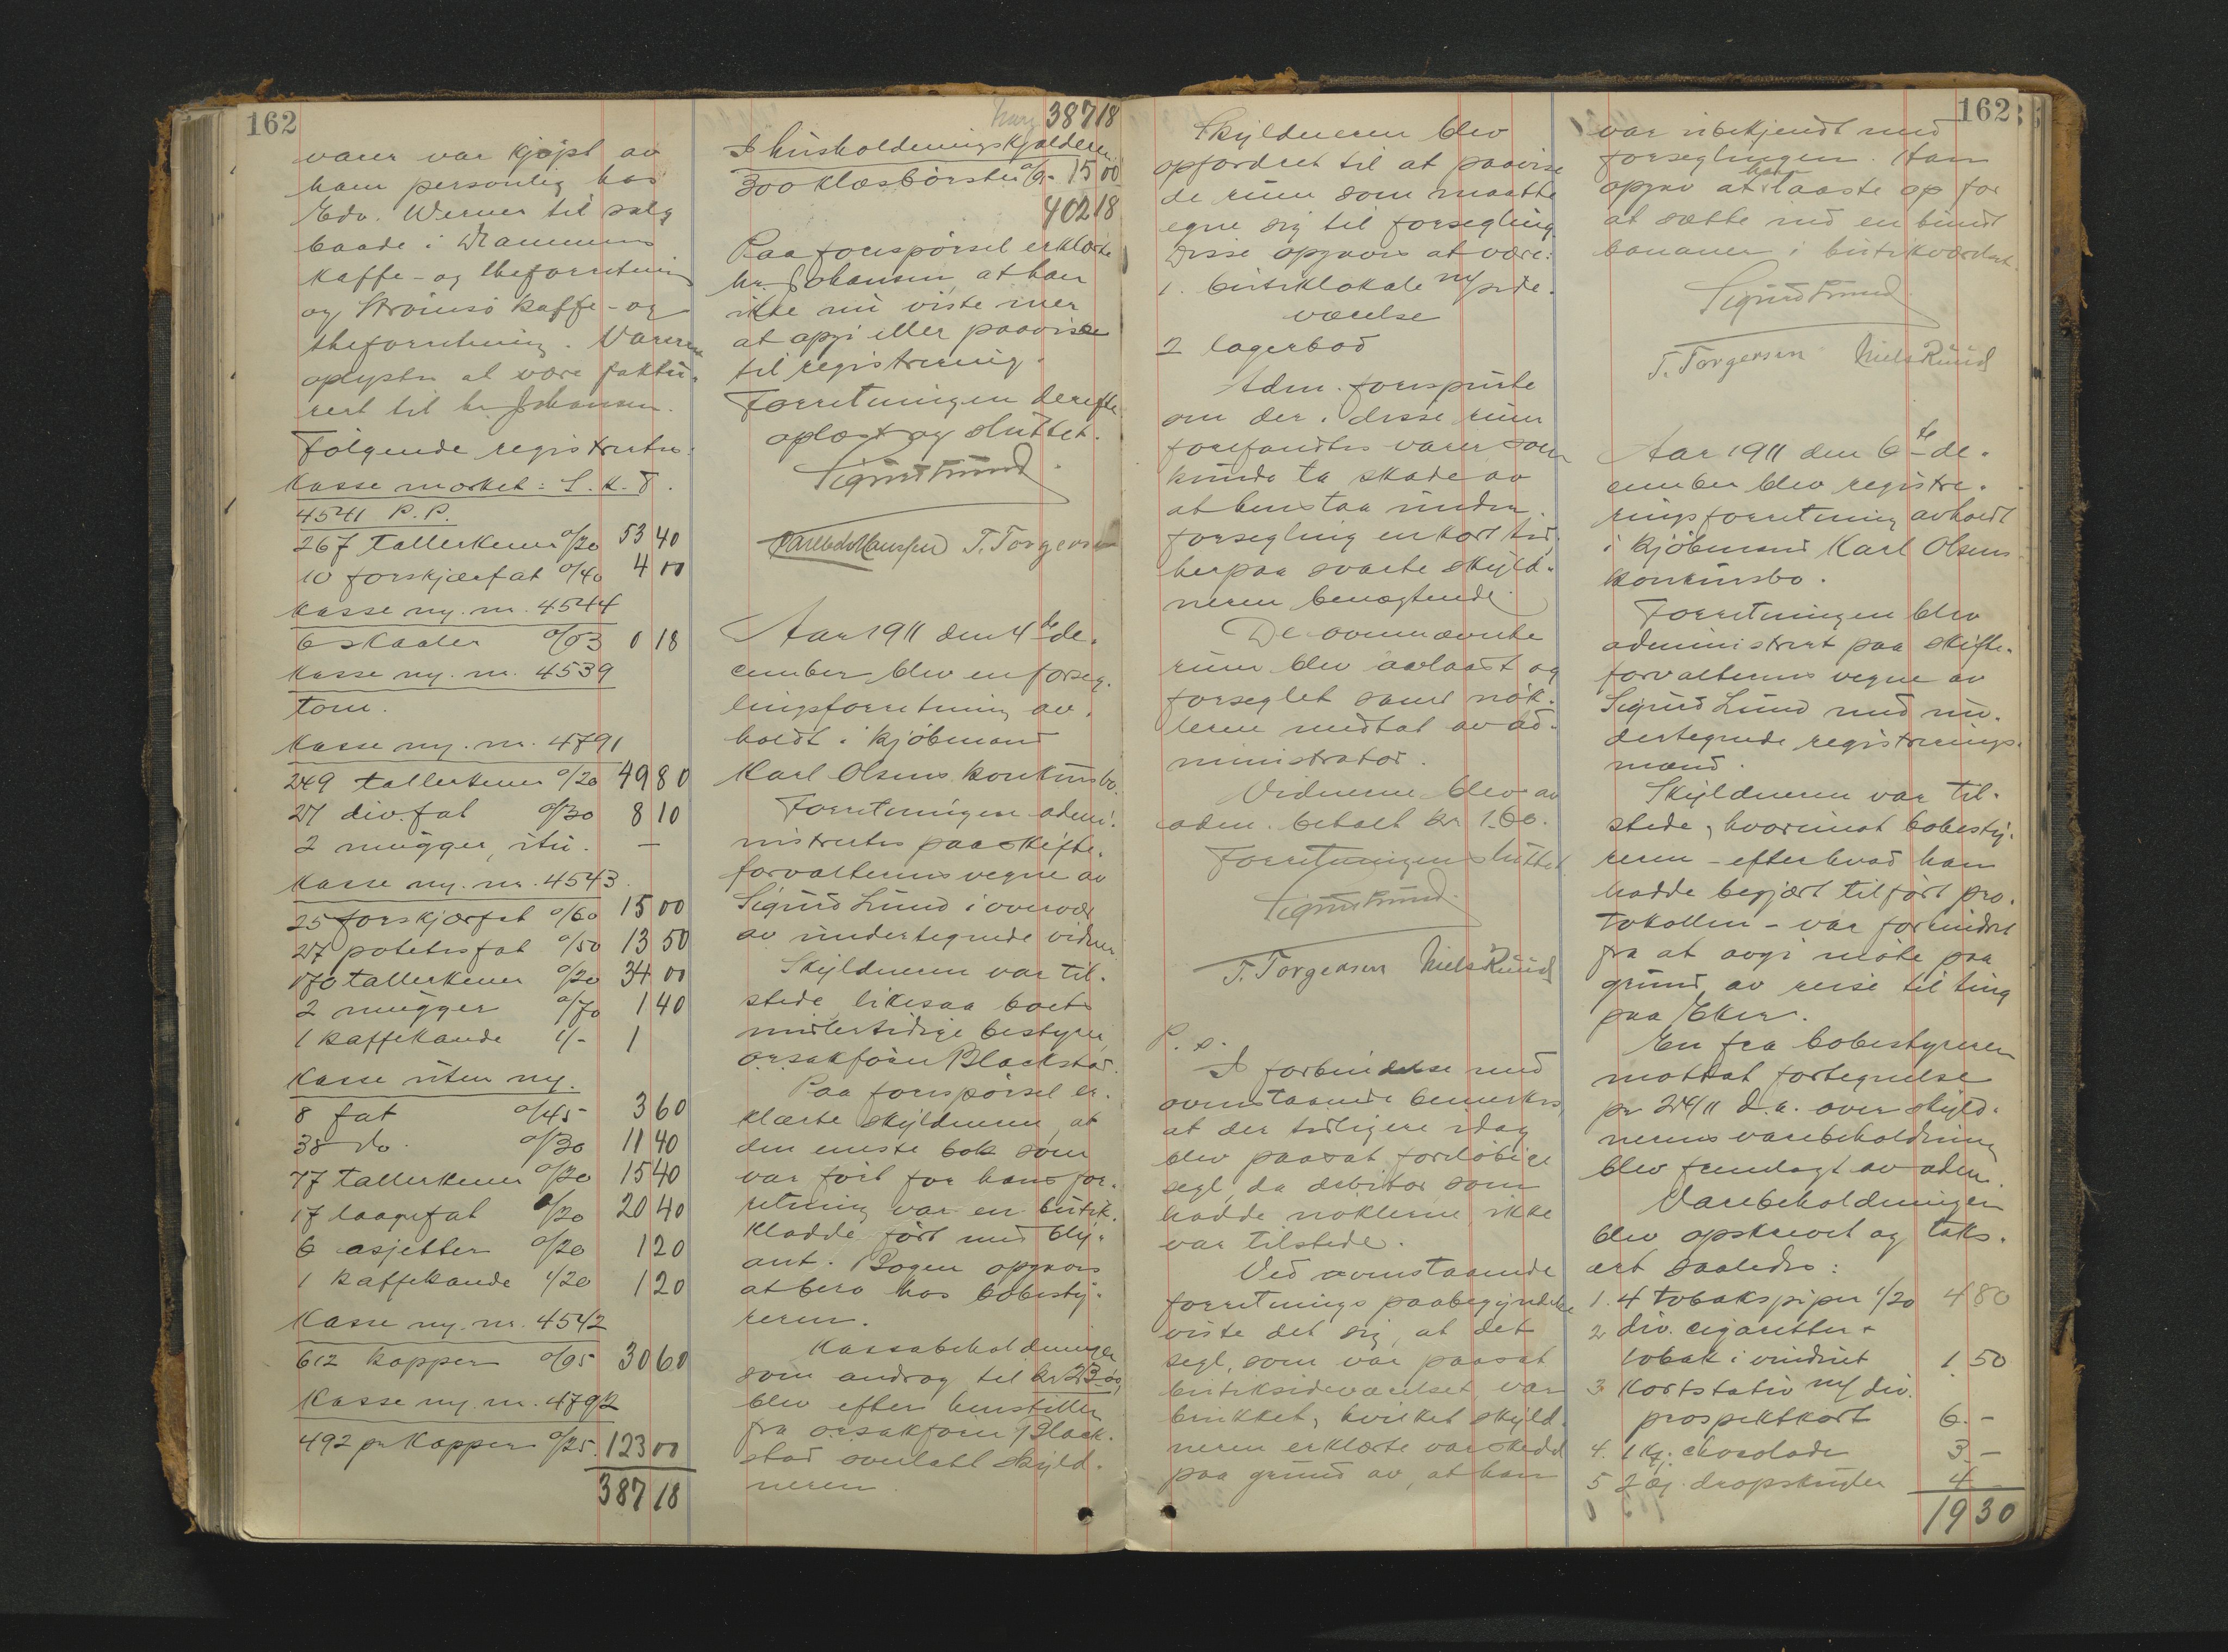 162
varer var kjøpt av
ham personlig hos
Edv. Werner til salg
baade i Drammens
kaffe- og theforretning
og Strømsø kaffe- og
theforretning. Varerne
oplystes at være faktu-
rert til hr. Johansen.
Følgende registrertes:
Kasse merket: S. K. T.
4541 P. P.
267 tallerkener o/20 53 40
10 forskjærfat o/40 4 00
Kasse ny. nr. 4544
6 skaaler o/03 0 18
Kasse ny. nr. 4539
tom.
Kasse ny. nr. 4791
249 tallerkener o/20 49 80
27 div. fat o/30 8 10
2 mugger, itu. —
Kasse ny. nr. 4543.
25 forskjærfat o/60 15 00
27 potetesfat o/50 13 50
170 tallerkener o/20 34 00
2 mugger o/70 1 40
1 kaffekande 1/- 1
Kasse uten ny.
8 fat o/45 3 60
38 do. o/30 11 40
77 tallerkener o/20 15 40
17 laagefat 1/20 20 40
6 asjetter o/20 1 20
1 kaffekande 1/20 1 20
Kasse ny. nr. 4542
612 kopper o/05 30 60
Kasse ny. nr. 4792
492 pr kopper o/25. 123 00
387 18
387 18
I husholdningskjælderen
300 klosbørster 15 00
402 18
Paa forespørsel erklærte
hr. Johansen, at han
ikke nu viste mer
at opgi eller paavise
til registrering.
Forretningen derefter
oplæst og sluttet.
Sigurd Lund.
T. Torgersen
Aar 1911 den 4de de-
cember blev en forseg-
lingsforretning av-
holdt i kjøbmand
Karl Olsens konkursbo.
Forretningen admi-
nistrertes paa skifte-
forvalterens vegne av
Sigurd Lund i overvær
av undertegnede vidner.
Skyldneren var til-
stede, likesaa boets
midlertidige bestyrer,
o.r.sakfører Blackstad.
Paa forespørsel er-
klærte skyldneren, at
den eneste bok som
var ført for hans for-
retning var en butik-
kladde, ført med bly-
ant. Bogen opgaves
at bero hos bobesty-
reren.
Kassabeholdningen
som androg til kr 23.00,
blev efter henstillen
fra o.r.sakfører Black-
stad overlatt skyld-
neren.
162
Skyldneren blev
opfordret til at paavise
de rum som maatte
egne sig til forsegling
Disse opgaves at være:
1. butiklokale m/ side-
værelse
2 lagerbod
Adm. forespurte
om der i disse rum
forefandtes varer som
kunde ta skade av
at henstaa under
forsegling en kort tid,
herpaa svarte skyld-
neren benægtende.
De ovennævnte
rum blev avlaast og
forseglet samt nøk-
lerne medtat av ad-
ministrator.
Vidnerne blev av
adm. betalt kr 1.60.
Forretningen sluttet
Sigurd Lund.
T. Torgersen Niels Ruud
P. s.
I forbindelse med
ovenstaaende bemerkes,
at der tidligere idag
blev paasat foreløbige
segl, da debitor som
hadde nøklerne, ikke
var tilstede.
Ved ovenstaaende
forretnings paabegyndelse
viste det sig, at det
segl, som var paasat
butiksideværelset, var
brukket, hvilket skyld-
neren erklærte var skedd
paa grund av, at han
var ubekjendt med
forseglingen. Han
opgav at han laaste op for
at sætte ind en bundt
bananer i butikværelset.
Sigurd Lund
T. Torgersen Niels Ruud
Aar 1911 den 6te de-
cember blev registre-
ringsforretning avholdt
i kjøbmand Karl Olsens
konkursbo.
Forretningen blev
administrert paa skifte-
forvalterens vegne av
Sigurd Lund med un-
dertegnede registrerings-
mænd.
Skyldneren var til-
stede, hvorimot bobesty-
reren - efter hvad han
hadde begjært tilført pro-
tokollen - var forhindret
fra at avgi møte paa
grund av reise til ting
paa Eker.
En fra bobestyreren
mottat fortegnelse
pr 24/11 d.a. over skyld-
nerens varebeholdning
blev fremlagt av adm.
Varebeholdningen
blev opskrevet og taks-
ert saaledes:
1. 4 tobakspiper 1/20 4 80
2 div. cigaretter +
tobak i vinduet 1. 50
3 Kortstativ m/ div.
prospektkort 6. -
4. 1 kg. chocolade 3 -
5 2 æ. 4 -
19 30